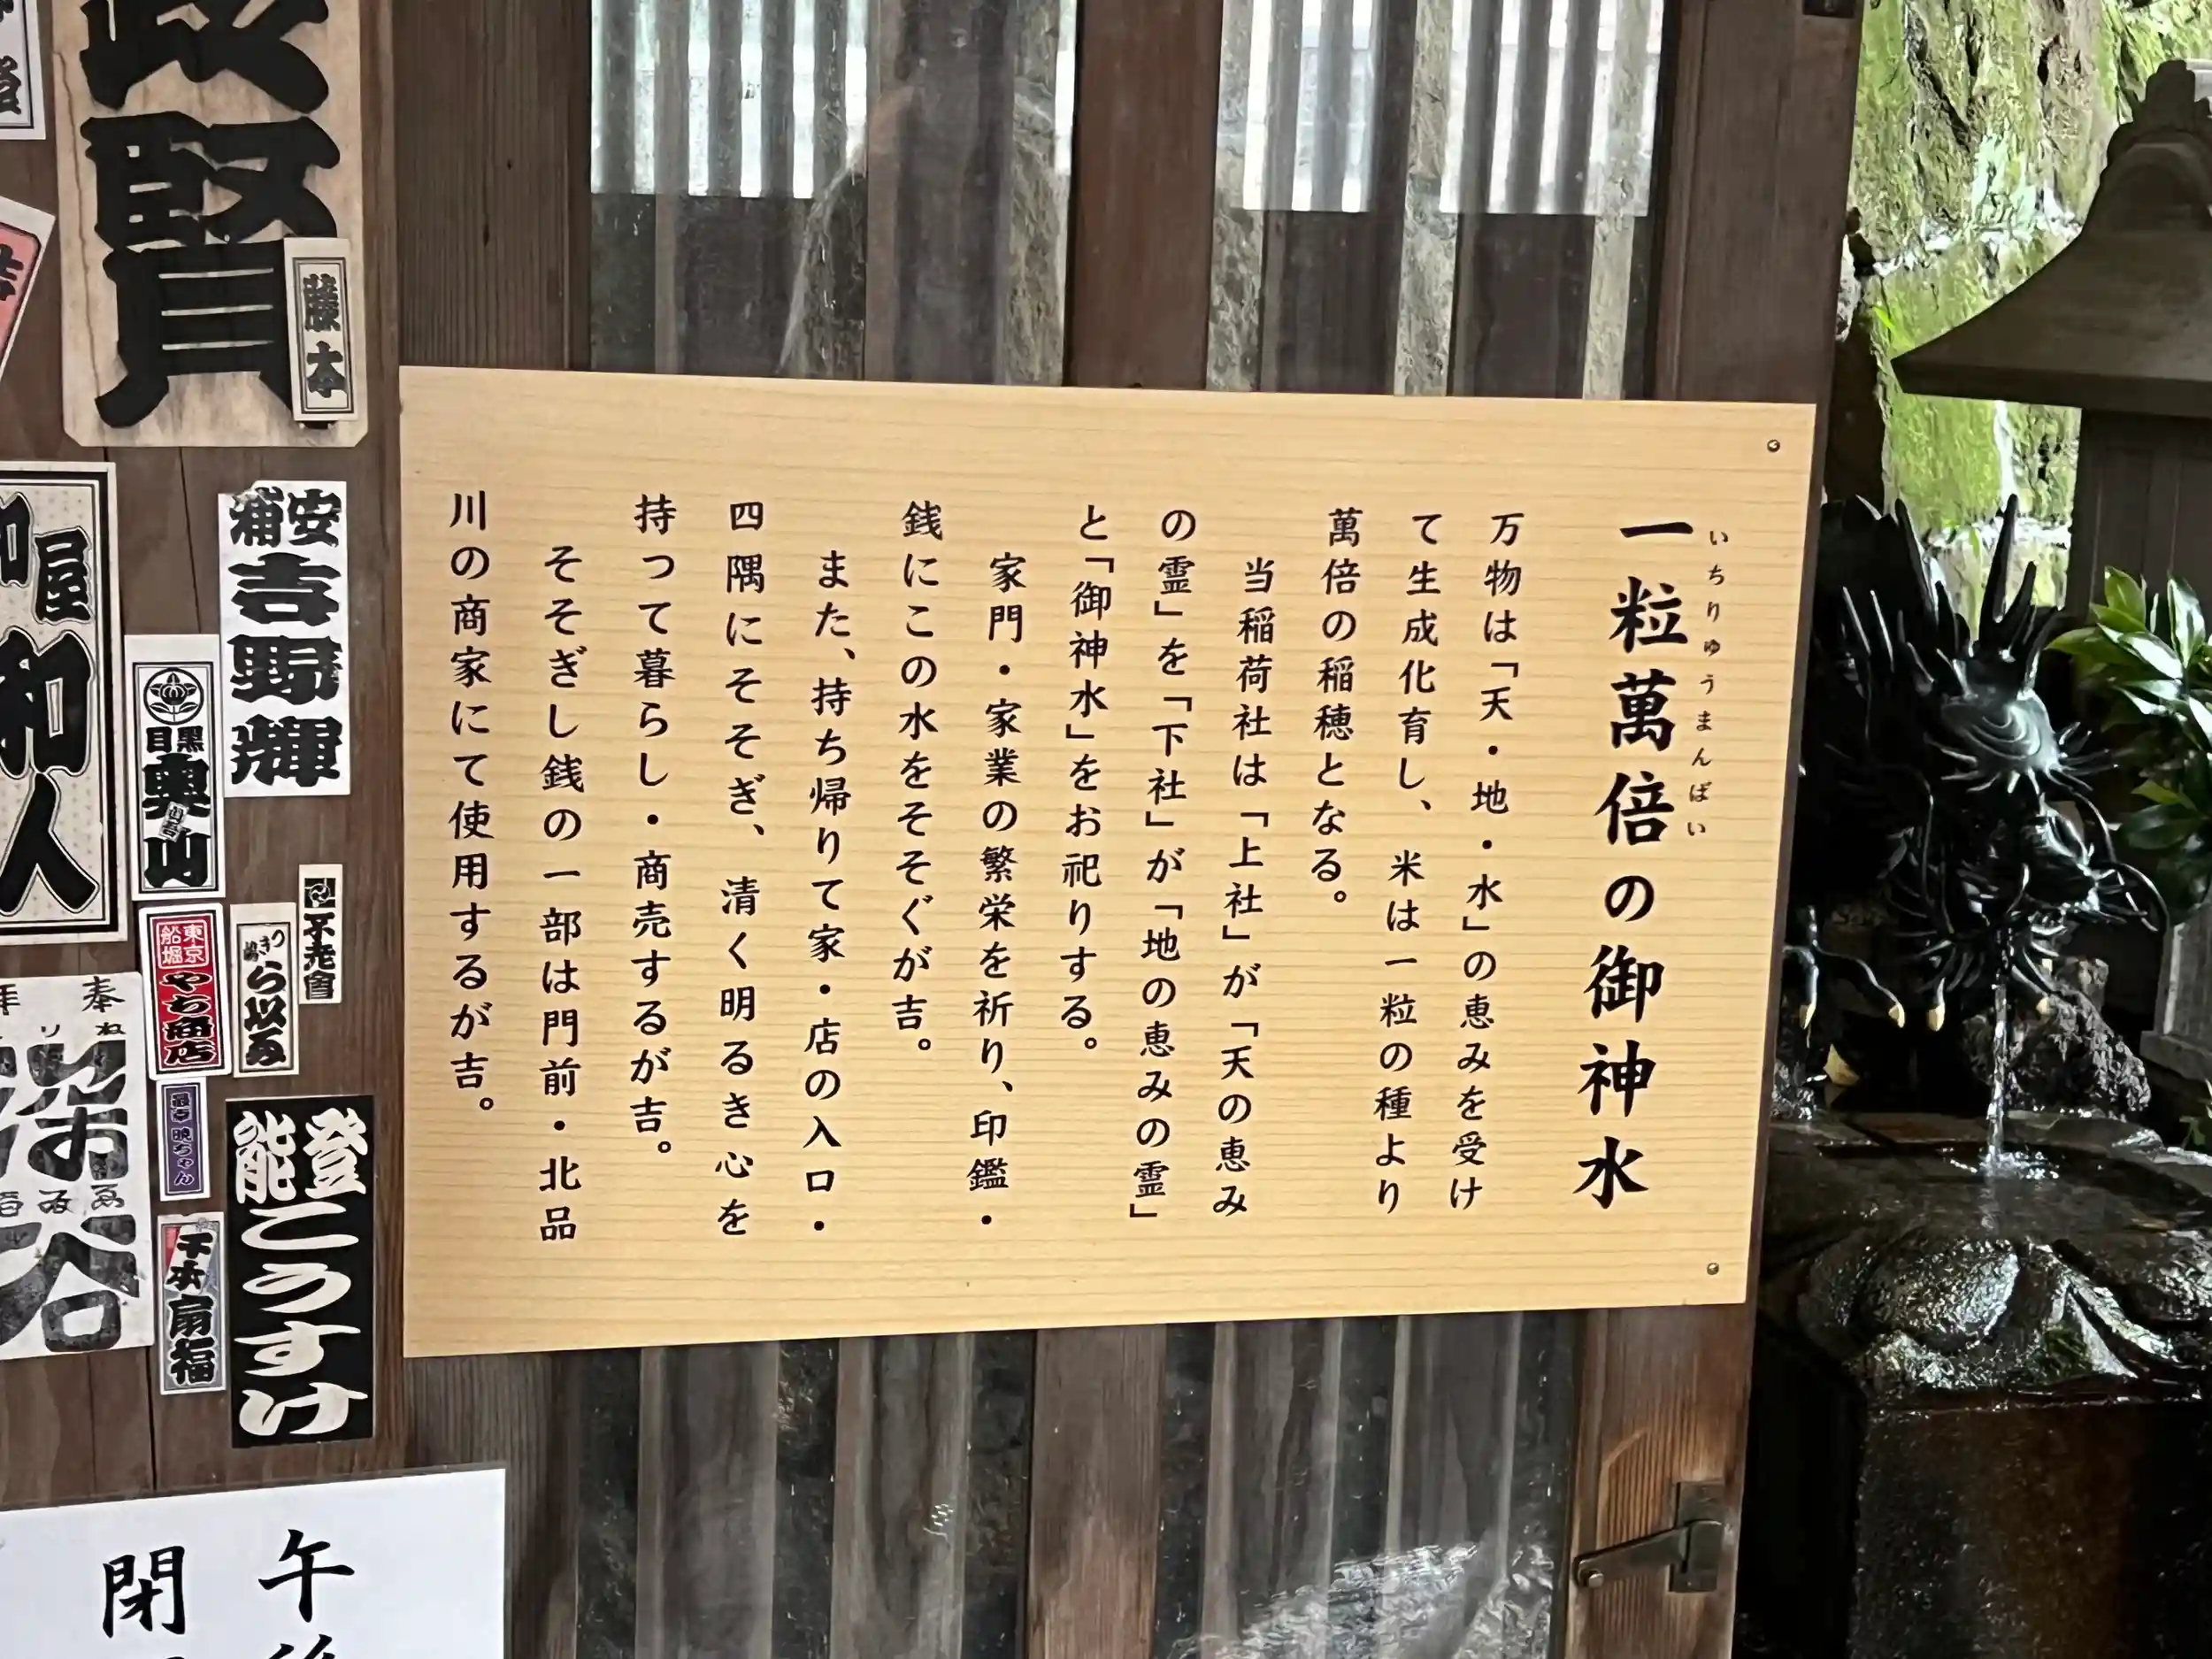 一粒萬倍の御神水
いちりゅうまんばい
万物は「天・地・水」の恵みを受け
て生成化育し、米は一粒の種より
萬倍の稲穂となる。
当稲荷社は「上社」が「天の恵み
の霊」を「下社」が「地の恵みの霊」
と「御神水」をお祀りする。
家門・家業の繁栄を祈り、印鑑・
銭にこの水をそそぐが吉。
また、持ち帰りて家・店の入口・
四隅にそそぎ、清く明るき心を
持って暮らし・商売するが吉。
そそぎし銭の一部は門前・北品
川の商家にて使用するが吉。
賢
藤本
浦安
吉野輝
屋
和人
目黒
奥山
不老會
東京
船堀
やち商店
ら以石
奉
深谷
暁ちゃん
能登
こうすけ
千社
扇福
午後
閉